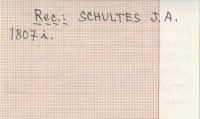 Rec.: SCHULTES J.A.
1807 i.